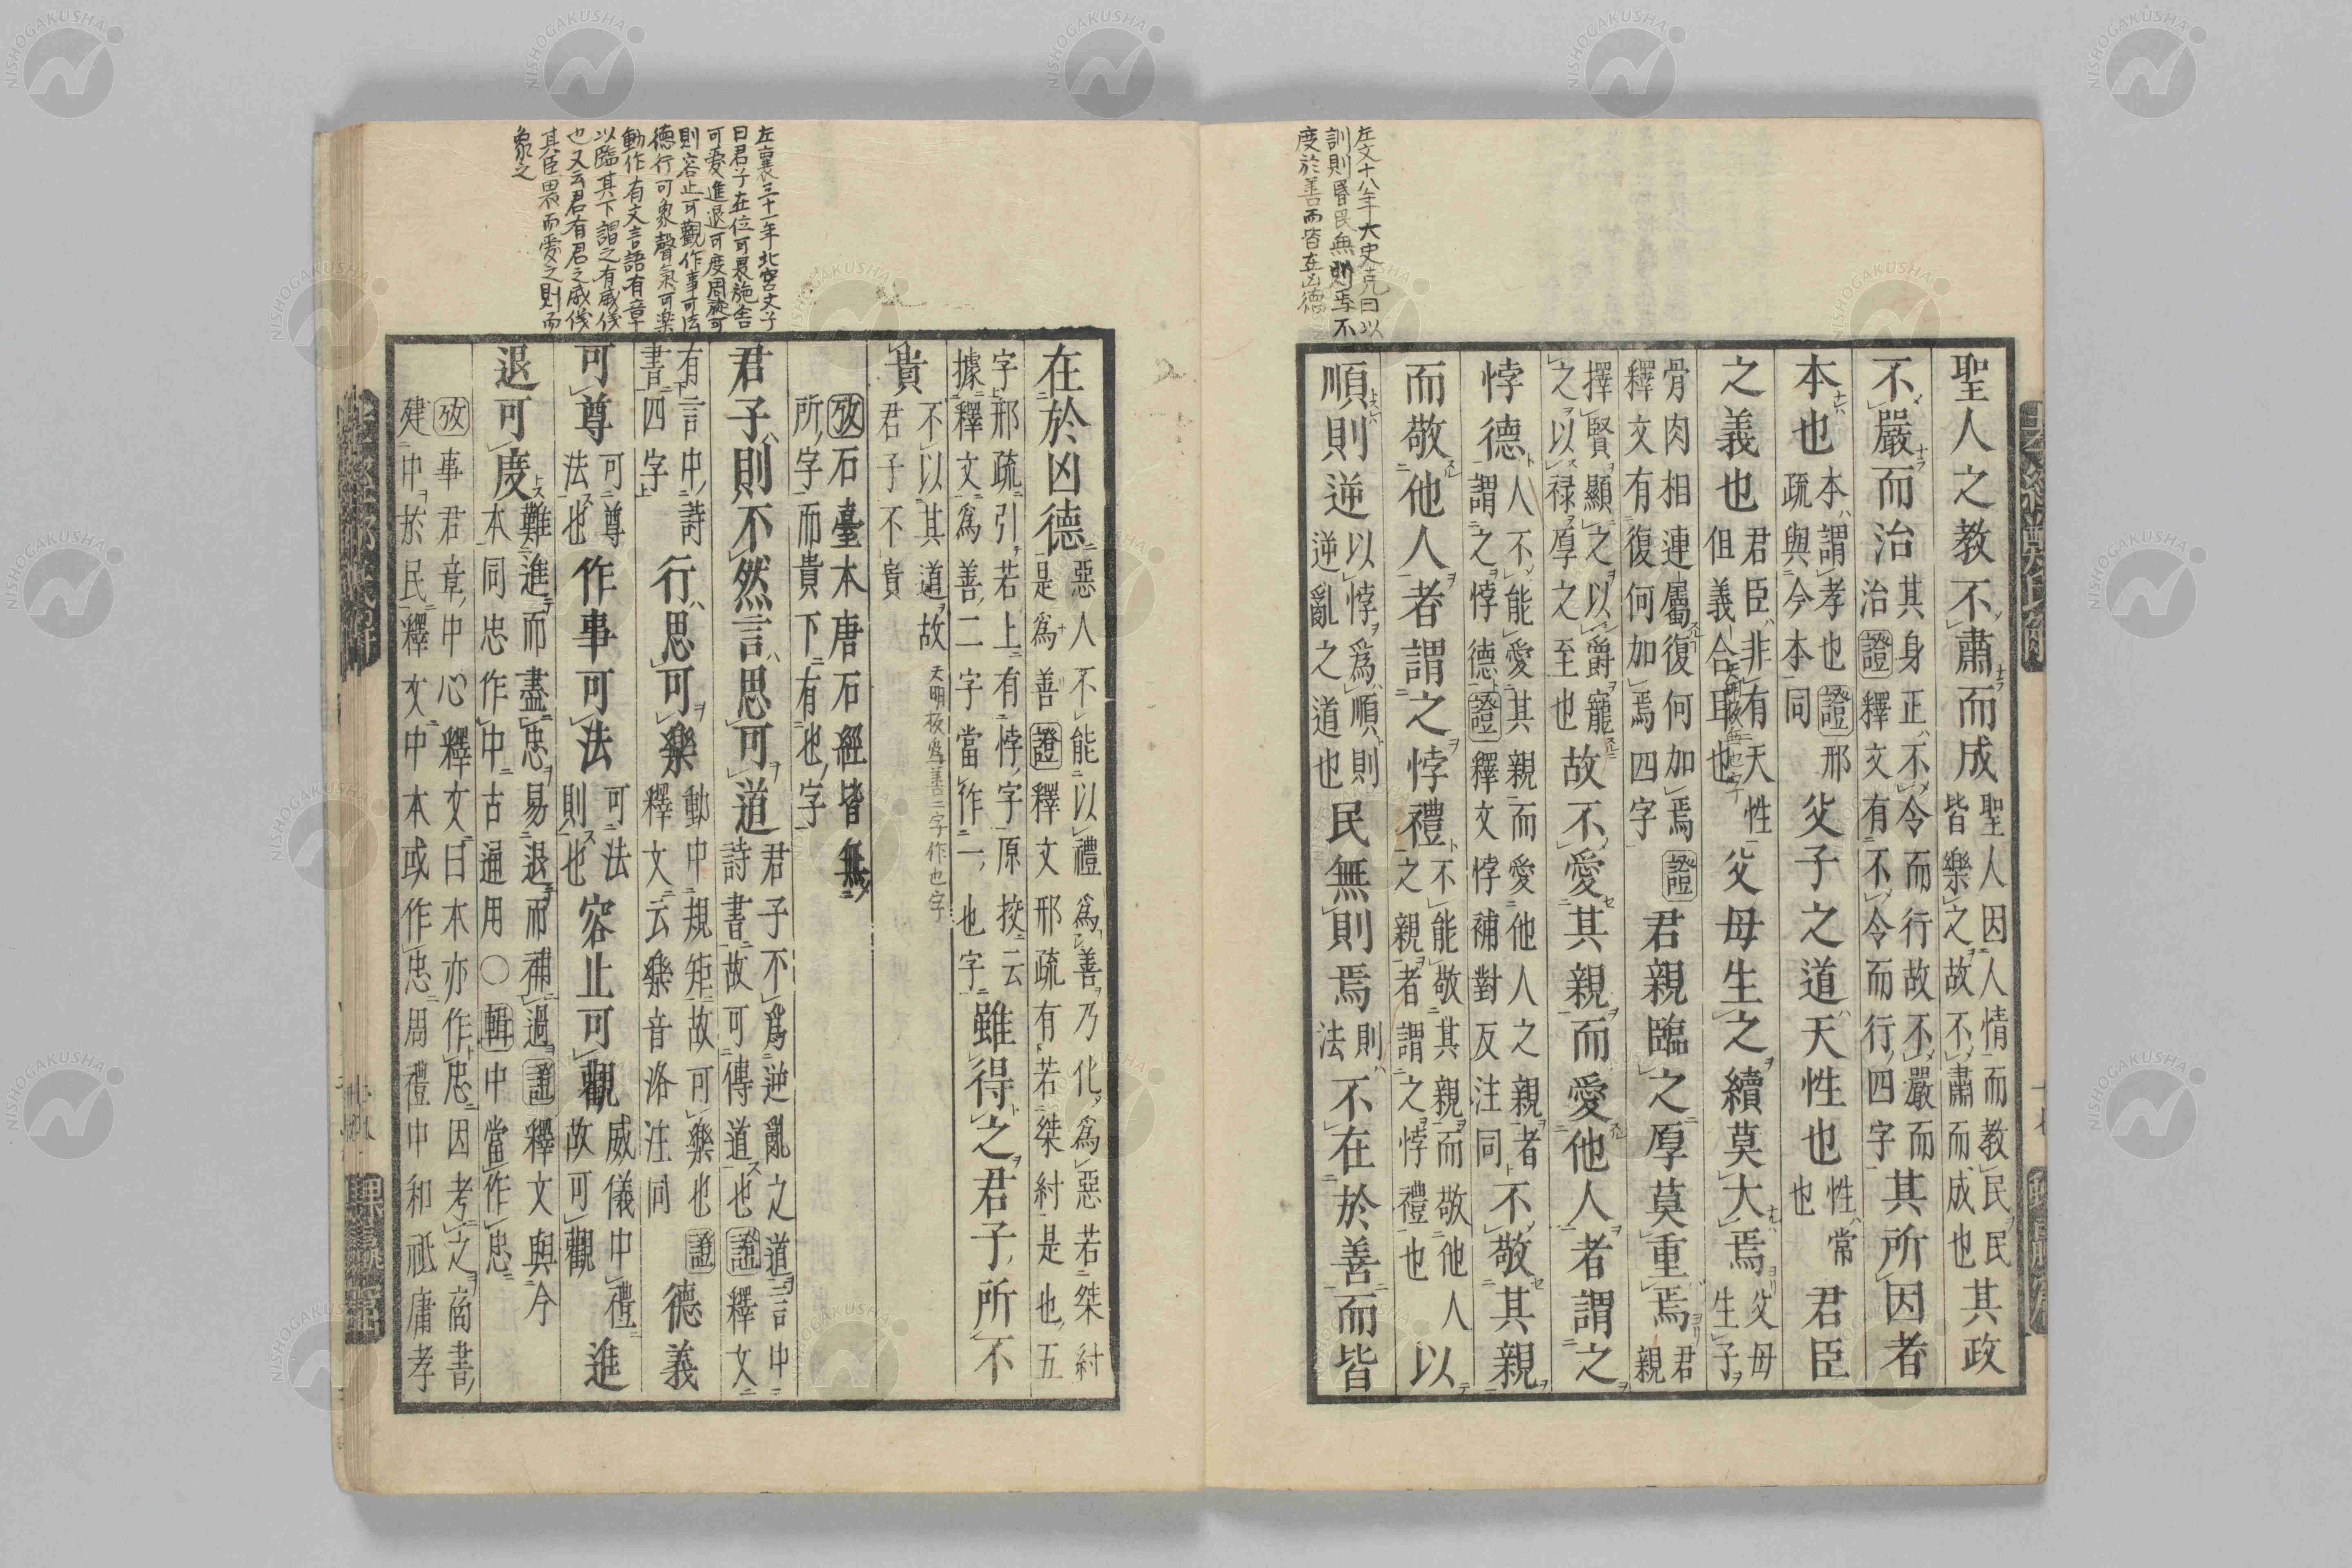 左文十八年大史克曰以
訓則昏民無則焉不
度於善而皆在凶德
聖人之教不肅而成聖人因人情而教民民皆樂之故不肅而成也其政
不嚴而治其身正不令而行故不嚴而治證釋文有不令而行四字其所因者
本也本謂孝也證邢疏與今本同父子之道天性也性常也君臣
之義也君臣非有天性但義合耳也父母生之續莫大焉父母生子
骨肉相連屬復何加焉證釋文有復何加焉四字君親臨之厚莫重焉君親
擇賢顯之以爵寵之以祿厚之至也故不愛其親而愛他人者謂之
悖德人不能愛其親而愛他人之親者謂之悖德證釋文悖補對反注同不敬其親
而敬他人者謂之悖禮不能敬其親而敬他人之親者謂之悖禮也以
順則逆以悖爲順則逆亂之道也民無則焉則法不在於善而皆
左襄三十一年北宮文子
曰君子在位可畏施舍
可愛進退可度周旋可
則容止可觀作事可法
德行可象聲氣可樂
動作有文言語有章
以臨其下謂之有威儀
也又云君有君之威儀
其臣畏而愛之則而
象之
在於凶德惡人不能以禮爲善乃化爲惡若桀紂是爲善證釋文邢疏有若桀紂是也五
字邢疏引若上有悖字原挍云據釋文爲善二字當作一也字雖得之君子所不
貴不以其道故君子不貴天明板爲善二字作也字
攷石臺本唐石經皆無所字而貴下有也字
君子則不然言思可道君子不爲逆亂之道言中詩書故可傳道也證釋文
有言中詩書四字行思可樂動中規矩故可樂也證釋文云樂音洛注同德義
可尊可尊法也作事可法可法則也容止可觀威儀中禮故可觀進
退可度難進而盡忠易退而補過證釋文與今本同忠作中古通用○輯中當作忠
攷事君章中心釋文曰本亦作忠因考之商書建中於民釋文中本或作忠周禮中和祗庸孝